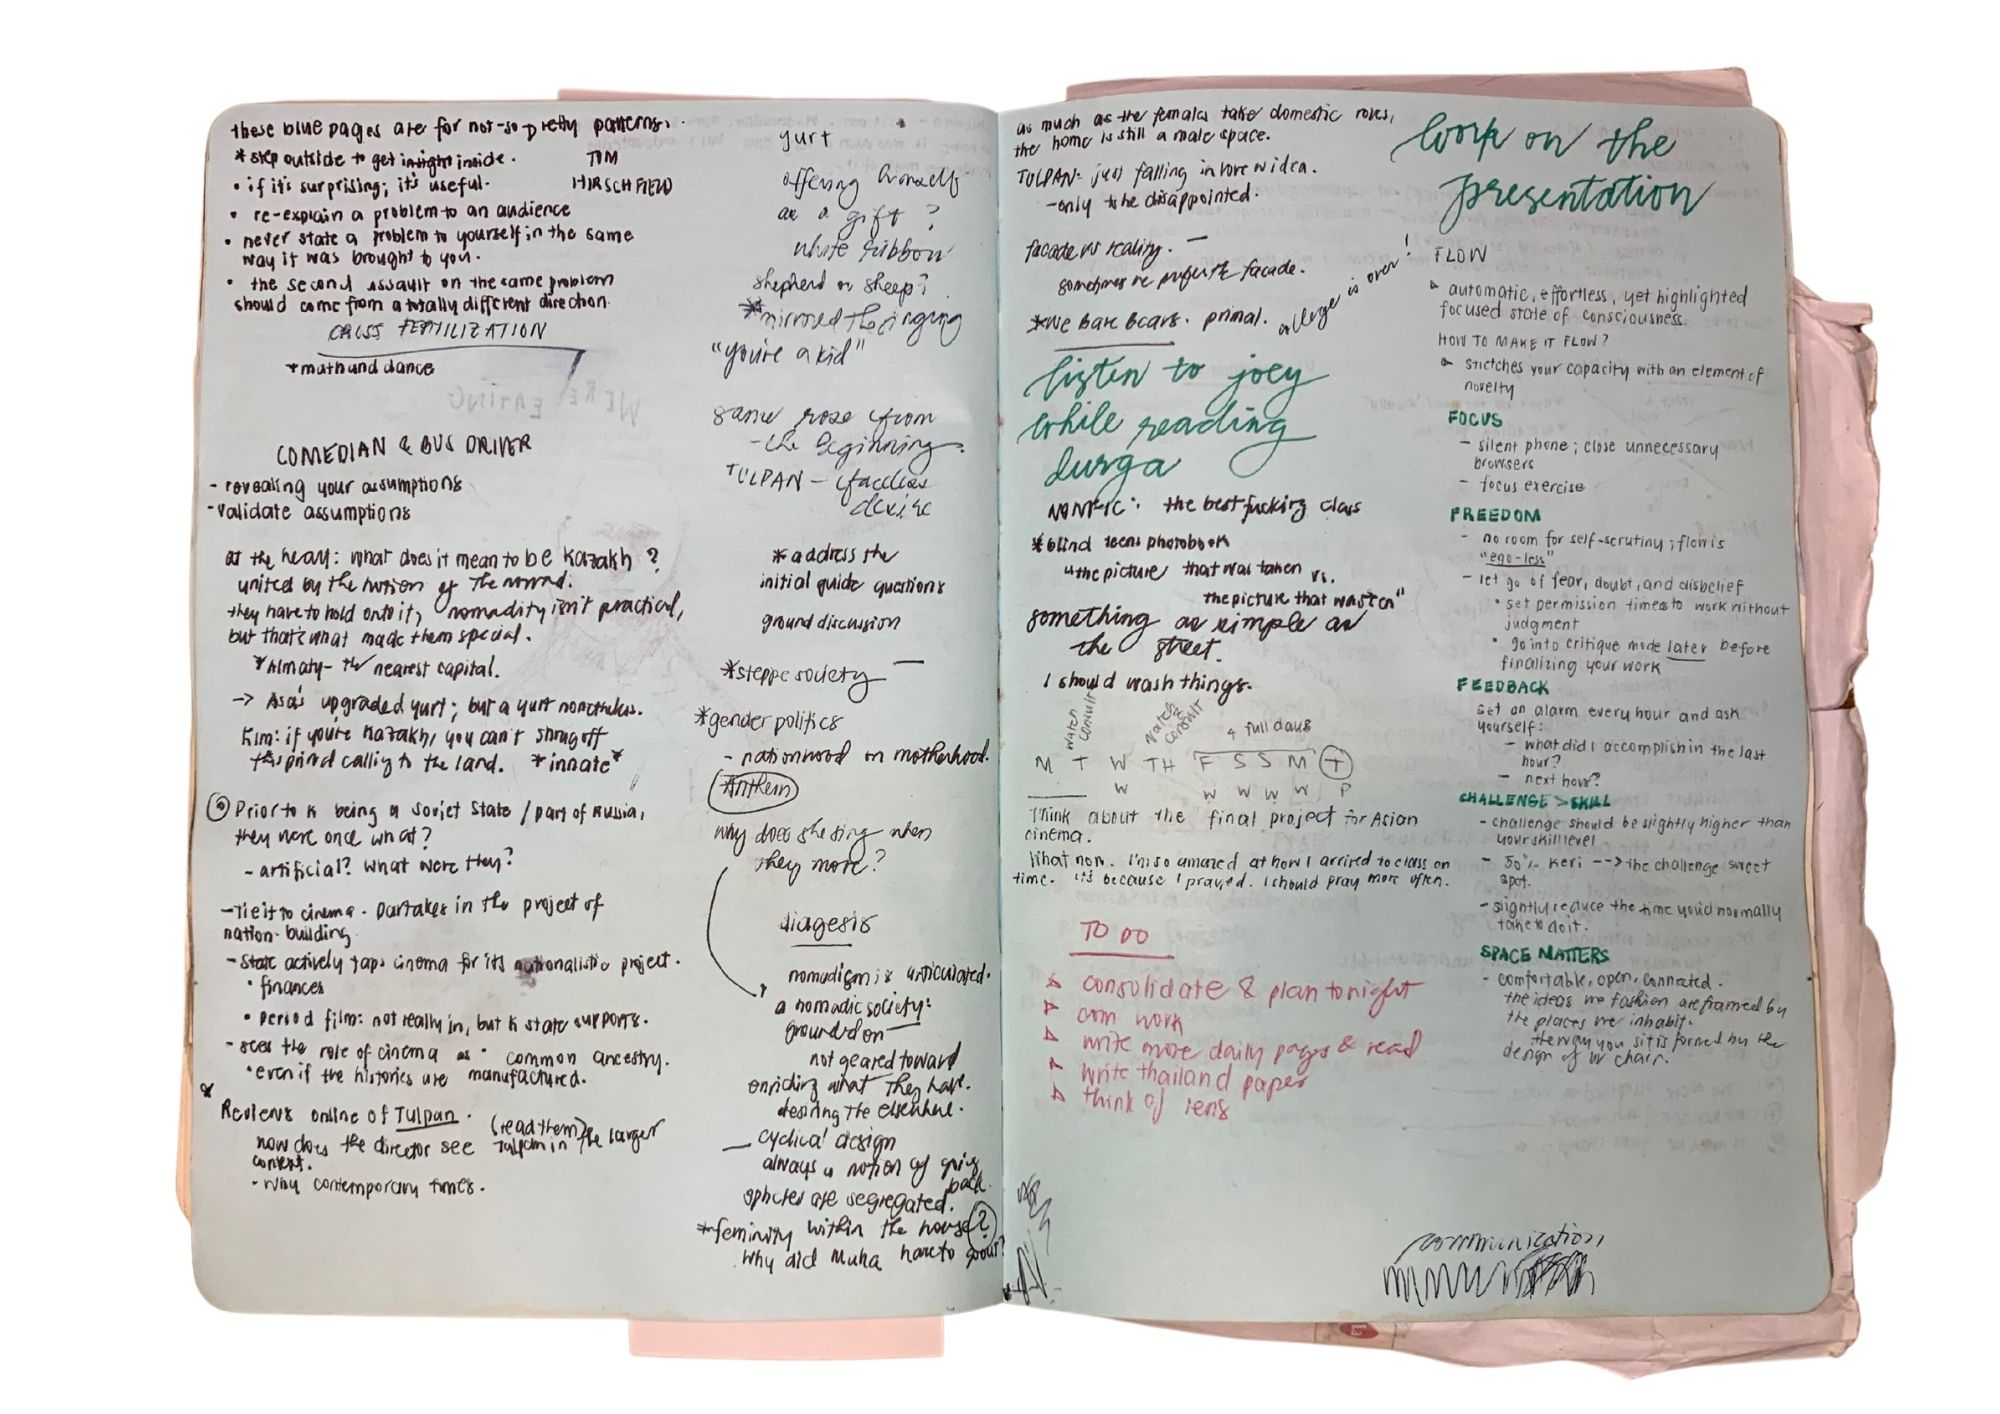 these blue pages are for not-so-pretty patterns.
* step outside to get insight inside.
TOM
HIRSCHFIELD
• if it's surprising; it's useful.
• re-explain a problem to an audience
• never state a problem to yourself in the same
way it was brought to you.
• the second assault on the same problem
should come from a totally different direction.
CROSS FERTILIZATION
* math and dance
WE'RE EATING
COMEDIAN & BUS DRIVER
- revealing your assumptions
- validate assumptions
at the heart: what does it mean to be Kazakh?
united by the notion of the nomad.
they have to hold onto it; nomadity isn't practical,
but that's what made them special.
* Almaty - the nearest capital.
-> Asa's upgraded yurt; but a yurt nonetheless.
Kim: if you're Kazakh, you can't shrug off
calling to the land. *innate*
Prior to K being a soviet state / part of Russia,
they were once what?
- artificial? What were they?
- Tie it to cinema. Partakes in the project of
nation-building
- State actively taps cinema for its nationalistic project.
• finances
• Period film: not really in, but K state supports.
- sees the role of cinema as common ancestry.
• even if the histories are manufactured.
Reviews online of Tulpan. (read them)
how does the director see Tulpan in the larger
context.
- Why contemporary times.
yurt
offering himself
as a gift?
white ribbon
shepherd or sheep?
* mirrored the singing
"you're a kid"
same rose from
- the beginning.
TULPAN - faceless
desire
* address the
initial guide questions
ground discussion
* steppe society
* gender politics
- nationhood on motherhood.
Anthem
why does she sing when
they move?
diagesis
nomadism is articulated.
a nomadic society:
grounded on
not geared toward
enriching what they have.
desiring the elsewhere.
- cyclical design
always a notion of going
back.
spheres are segregated.
* feminity within the house?
why did Muha have to go out?
as much as the females take domestic roles,
the home is still a male space.
TULPAN - just falling in love w idea.
- only to be disappointed.
facade vs reality.
sometimes we prefer the facade.
college is over!
* We Bare Bears. primal.
listen to joey
while reading
durga
NONFIC: the best fucking class
* blind teens photobook
"the picture that was taken vs.
the picture that wasten"
something as simple as
the street.
I should wash things.
watch consult
watch & consult
4 full days
M T W TH F S S M T
W W W W W P
Think about the final project for Asian
cinema.
What now. I'm so amazed at how I arrived to class on
time. It's because I prayed. I should pray more often.
TO DO
consolidate & plan tonight
com work
write more daily pages & read
write thailand paper
think of lens
work on the
presentation
FLOW
automatic, effortless, yet highlighted
focused state of consciousness.
HOW TO MAKE IT FLOW?
stretches your capacity with an element of
novelty
FOCUS
- silent phone; close unnecessary
browsers
- focus exercise
FREEDOM
- no room for self-scrutiny; flow is
"ego-less"
- let go of fear, doubt, and disbelief
• set permission times to work without
judgment
• go into critique mode later before
finalizing your work
FEEDBACK
set an alarm every hour and ask
yourself:
- what did I accomplish in the last
hour?
- next hour?
CHALLENGE > SKILL
- challenge should be slightly higher than
your skill level
- 50% keri --> the challenge sweet
spot.
- slightly reduce the time you'd normally
take to do it.
SPACE MATTERS
- comfortable, open, connected.
the ideas we fashion are framed by
the places we inhabit.
the way you sit is formed by the
design of ur chair.
communication